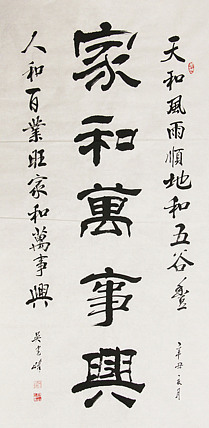 天和風雨順地和五谷豐
辛丑
家和萬事興
人和百業旺家和萬事興
吳